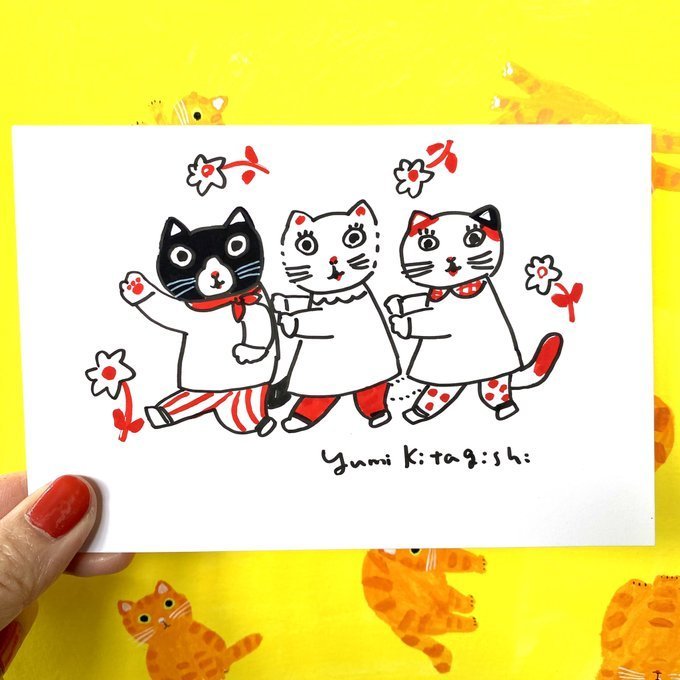 Yumi Kitagishi